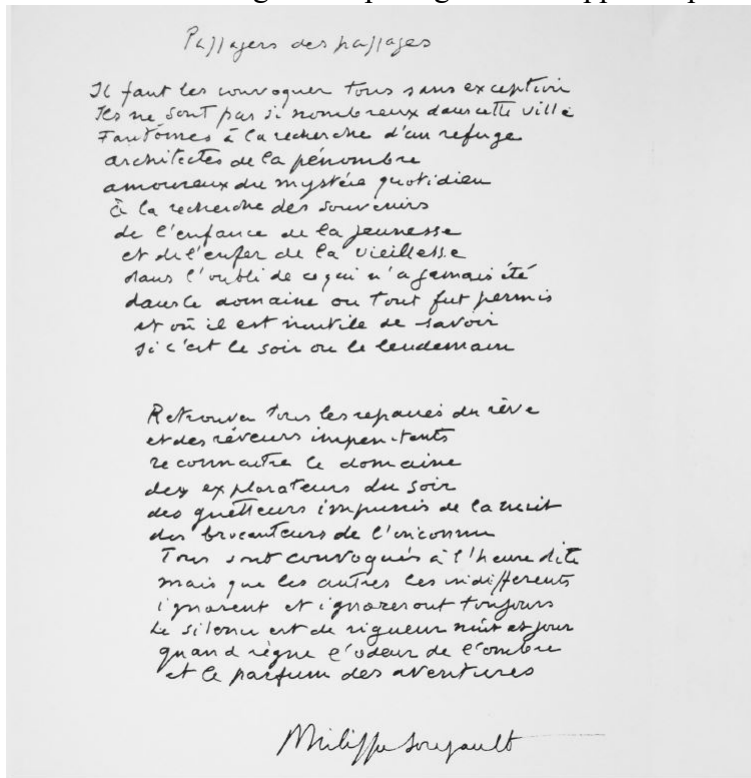 Passagers des passages
Il faut les convoquer tous sans exception
Ils ne sont pas si nombreux dans cette ville
Fantômes à la recherche d'un refuge
architectes de la pénombre
amoureux du mystère quotidien
à la recherche des souvenirs
de l'enfance de la jeunesse
et de l'enfer de la vieillesse
dans l'oubli de ce qui n'a jamais été
dans le domaine ou tout fut permis
et où il est inutile de savoir
si c'est le soir ou le lendemain
Retrouver tous les repaires du rêve
et des rêveurs impenitents
reconnaitre le domaine
des explorateurs du soir
des guetteurs impunis de la nuit
des brocanteurs de l'inconnu
Tous sont convoqués à l'heure dite
mais que les autres les indifferents
ignorent et ignoreront toujours
Le silence est de rigueur nuit et jour
quand règne l'odeur de l'ombre
et le parfum des aventures
Philippe Soupault